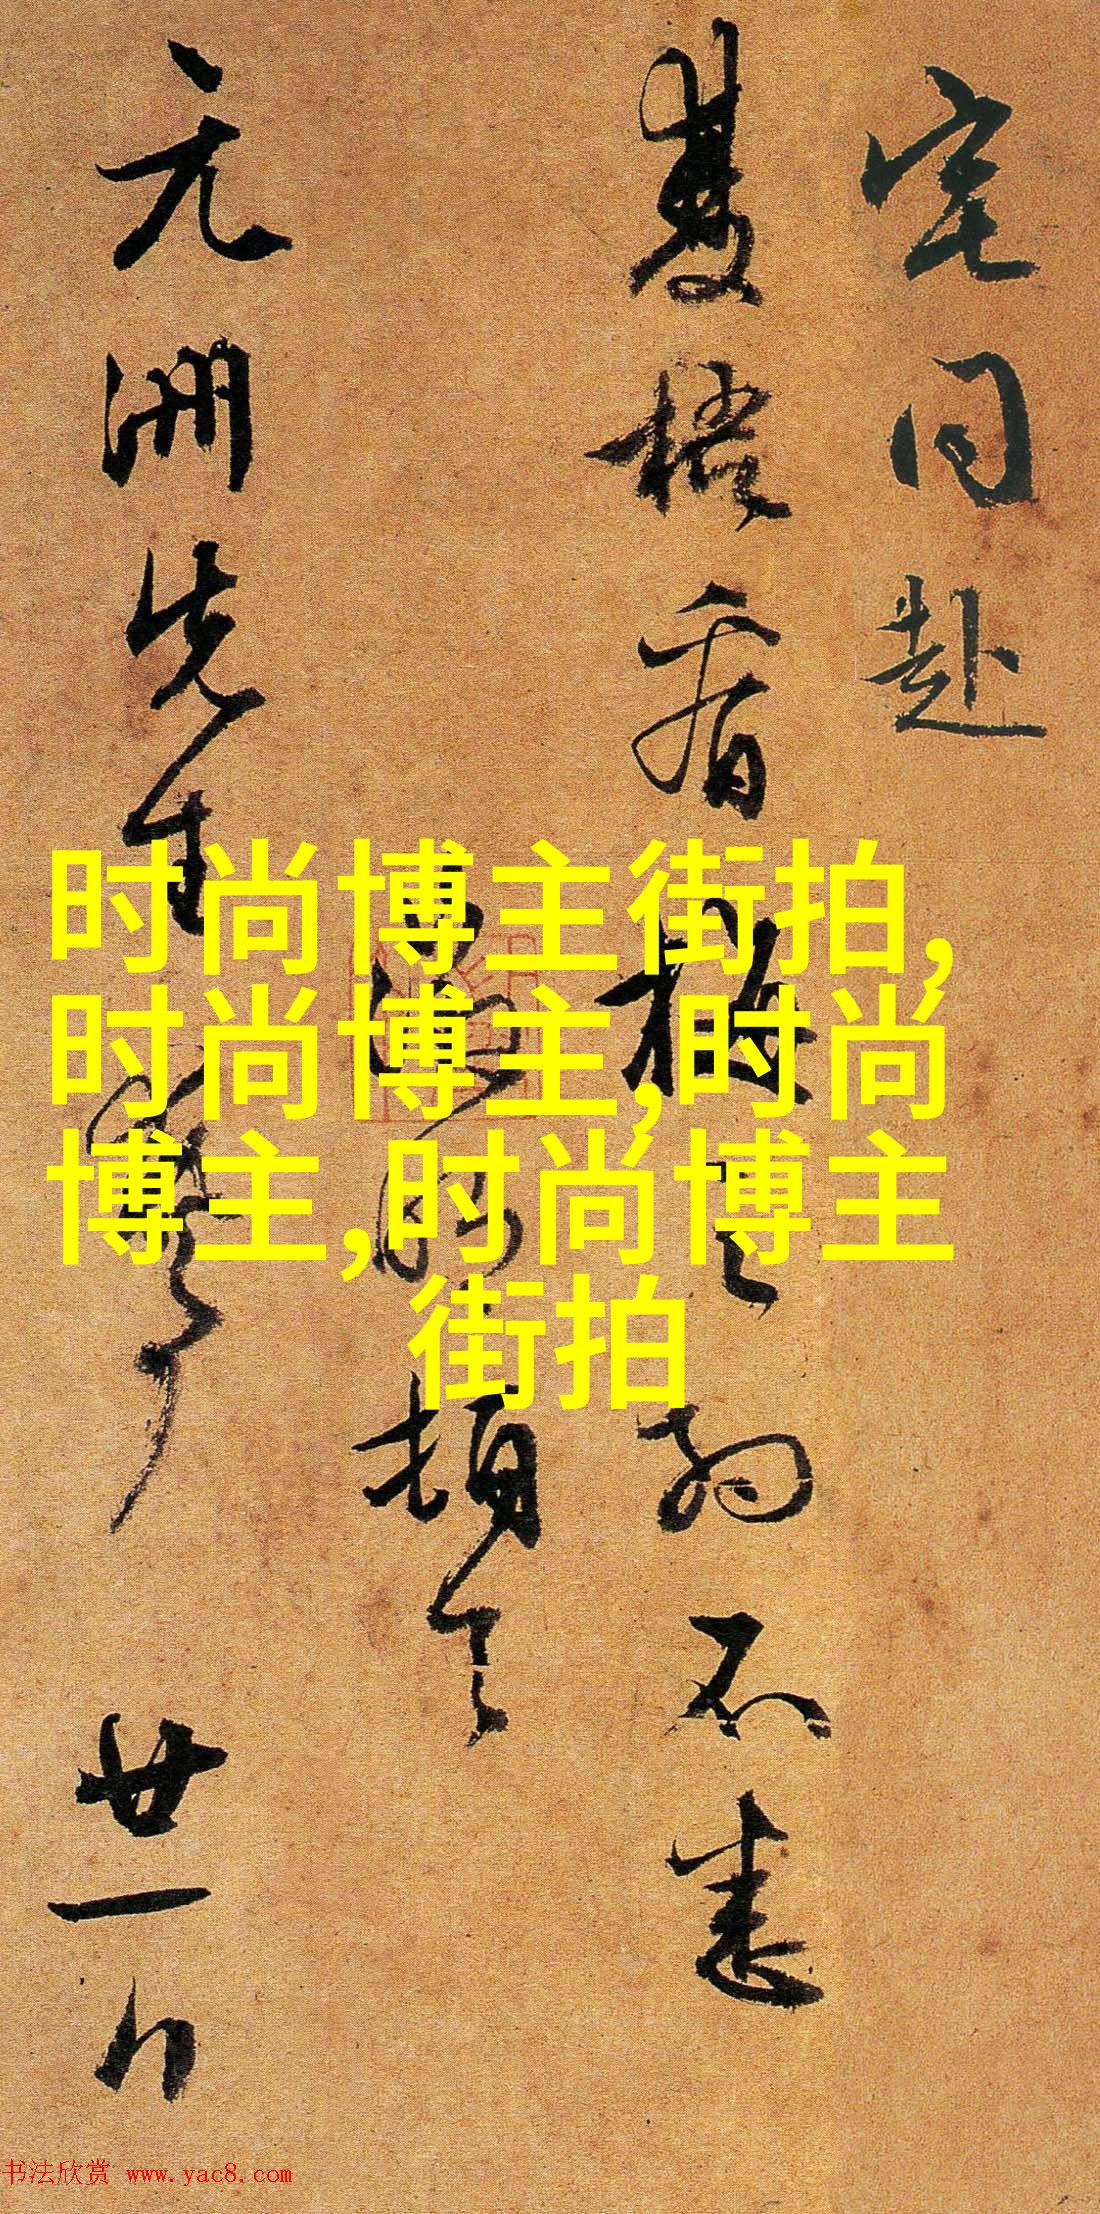 宅同赴
双梧看梅
不悉
顿
元洲先生
廿一日
时尚博主街拍,
时尚博主,时尚
博主,时尚博主
街拍
书法欣赏 www.yac8.com